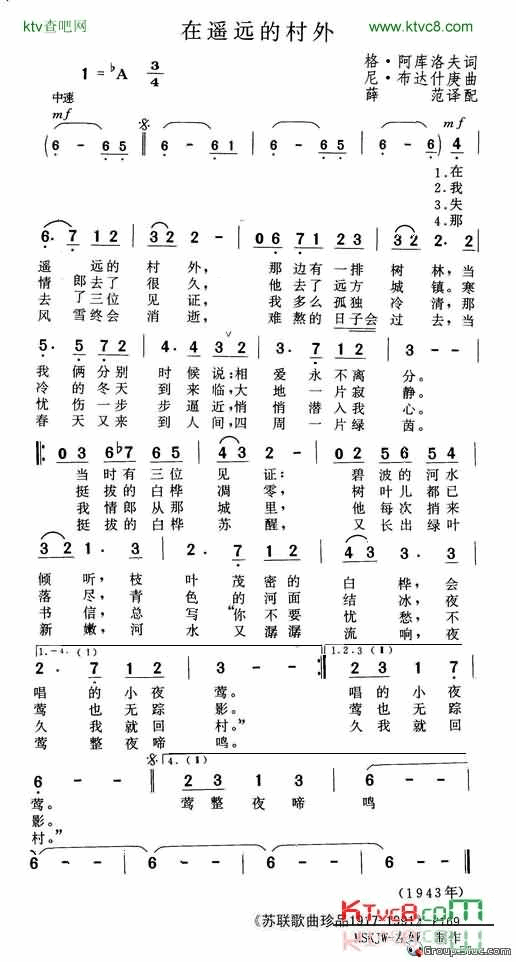 ktv查吧网
www.ktvc8.com
在遥远的村外
1=♭A 3/4
格·阿库洛夫词
尼·布达什庚曲
薛 范译配
中速
mf
(6 - 65 6 - 61 6 - 65 6 - 6) 4
mf
1.在
2.我
3.失
4.那
6. 7 12 32 2 - 06 71 13 32 2. 2
遥 远的 村 外, 那边有一排 树 林,当
情 郎去了 很 久, 他去了远方 城 镇。寒
去 了三位 见 证, 我多么孤独 冷 清,那
风 雪终会 消 逝, 难熬的日子会 过 去,当
5. 5 72 4. 4 32 3. 7 12 3 - -
我 俩分别 时 候说:相 爱 永不离 分。
冷 的冬天 到 来临,大 地 一片寂 静。
忧 伤一步 步 逼近,悄 悄 潜入我 心。
春 天又来 到 人间,四 周 一片绿 茵。
03 6♭7 65 43 3 - 02 56 54
当时有三位 见 证: 碧波的河水
挺拔的白桦 凋 零, 树叶儿都已
我情郎从那 城 里, 他每次捎来
挺拔的白桦 苏 醒, 又长出绿叶
32 1. 3 2. 7 12 43 3. 3
倾听,枝 叶 茂密的 白 桦,会
落尽,青 色 的河面 结 冰,夜
书信,总 写“你不要 忧 愁,不
新嫩,河 水 又潺潺 流 响,夜
1.-4.(1)
1.2.3(1)
2. 7 12 3 - - 23 1. 7
唱 的小夜 莺。 唱的小夜
莺 也无踪 影。 莺也无踪
久 我就回 村。” 久我就回
莺 整夜啼 鸣。
4.(1)
6 - - 23 13 6 - -
莺。 莺整夜啼 鸣
影。
村。”
6 - - 6 - - 6 - - 6 - -
(1943年)
《苏联歌曲珍品1917-1991
KTvc8.com
制作
Group.51uc.com